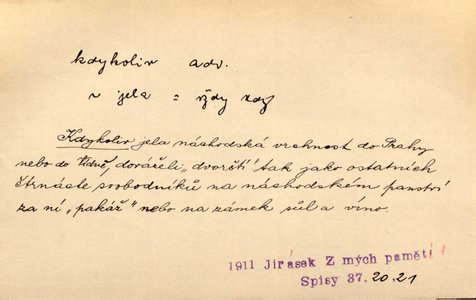 kdykoliv adv.
~ jela = vždy když
Kdykoliv jela náchodská vrchnost do Prahy
nebo do Vídně, doráželi „dvorští" tak jako ostatních
čtrnácte svobodníků na náchodském panství
za ní „pakáž" nebo na zámek sůl a víno.
1911 Jirásek Z mých pamětí 1
Spisy 37. 20.21